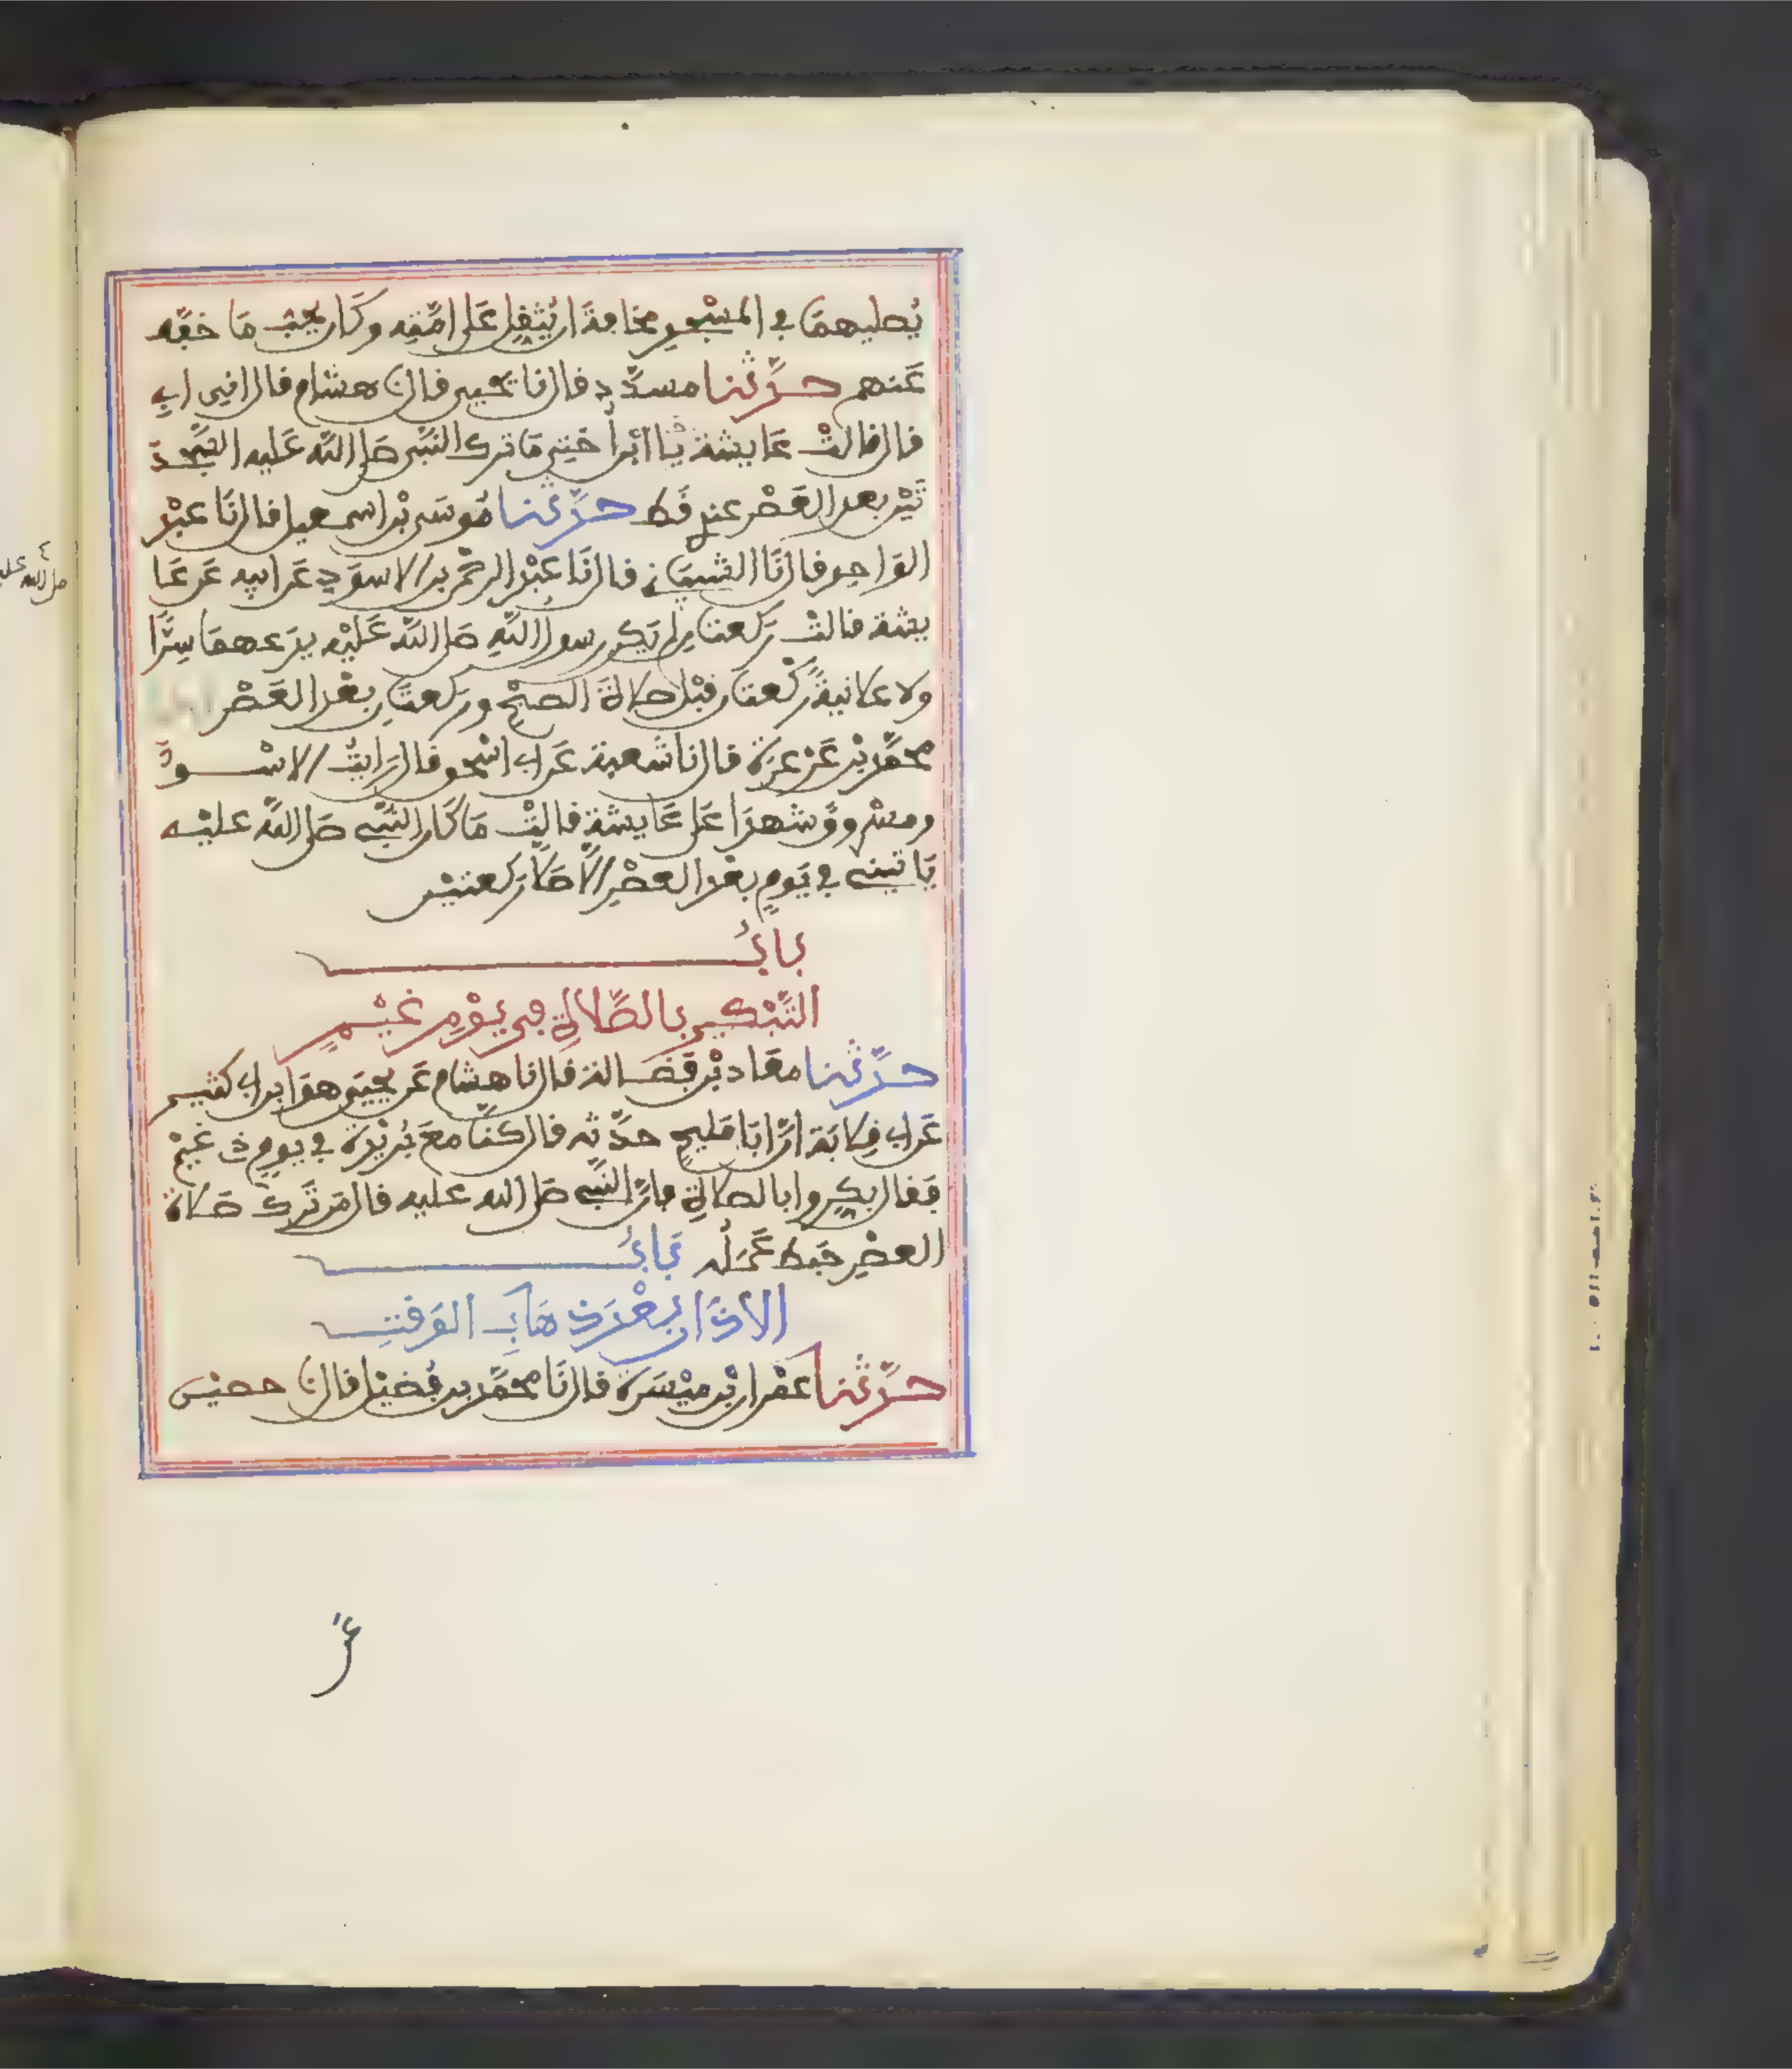 يصليهما في المسجد مخافة ان يثقل على امته وكان يحب ما خفف
عنهم حدثنا مسدد قال نا يحيى قال نا هشام قال اني ابي
قال قالت عايشة يا ابن اختي ما ترك النبي صلى الله عليه السجد
تين بعد العصر عندي قط حدثنا موسى بن اسمعيل قال نا عبد
الواحد قال نا الشيباني قال نا عبد الرحمن بن الاسود عن ابيه عن عا
يشة قالت ركعتان لم يكن رسول الله صلى الله عليه يدعهما سرا
ولا علانية ركعتان قبل صلاة الصبح وركعتان بعد العصر
محمد بن عرعرة قال نا شعبة عن ابي اسحق قال رايت الاسود
ومسروق شهدا على عايشة قالت ما كان النبي صلى الله عليه
ياتيني في يوم بعد العصر الا صلى ركعتين
باب
التبكير بالصلاة في يوم غيم
حدثنا معاد بن فضالة قال نا هشام عن يحيى هو ابن ابي كثير
عن ابي قلابة ان ابا مليح حدثه قال كنا مع بريدة في يوم ذي غيم
فقال بكروا بالصلاة فان النبي صلى الله عليه قال من ترك صلاة
العصر حبط عمله باب
الاذان بعد ذهاب الوقت
حدثنا عمران بن ميسرة قال نا محمد بن فضيل قال نا حصين